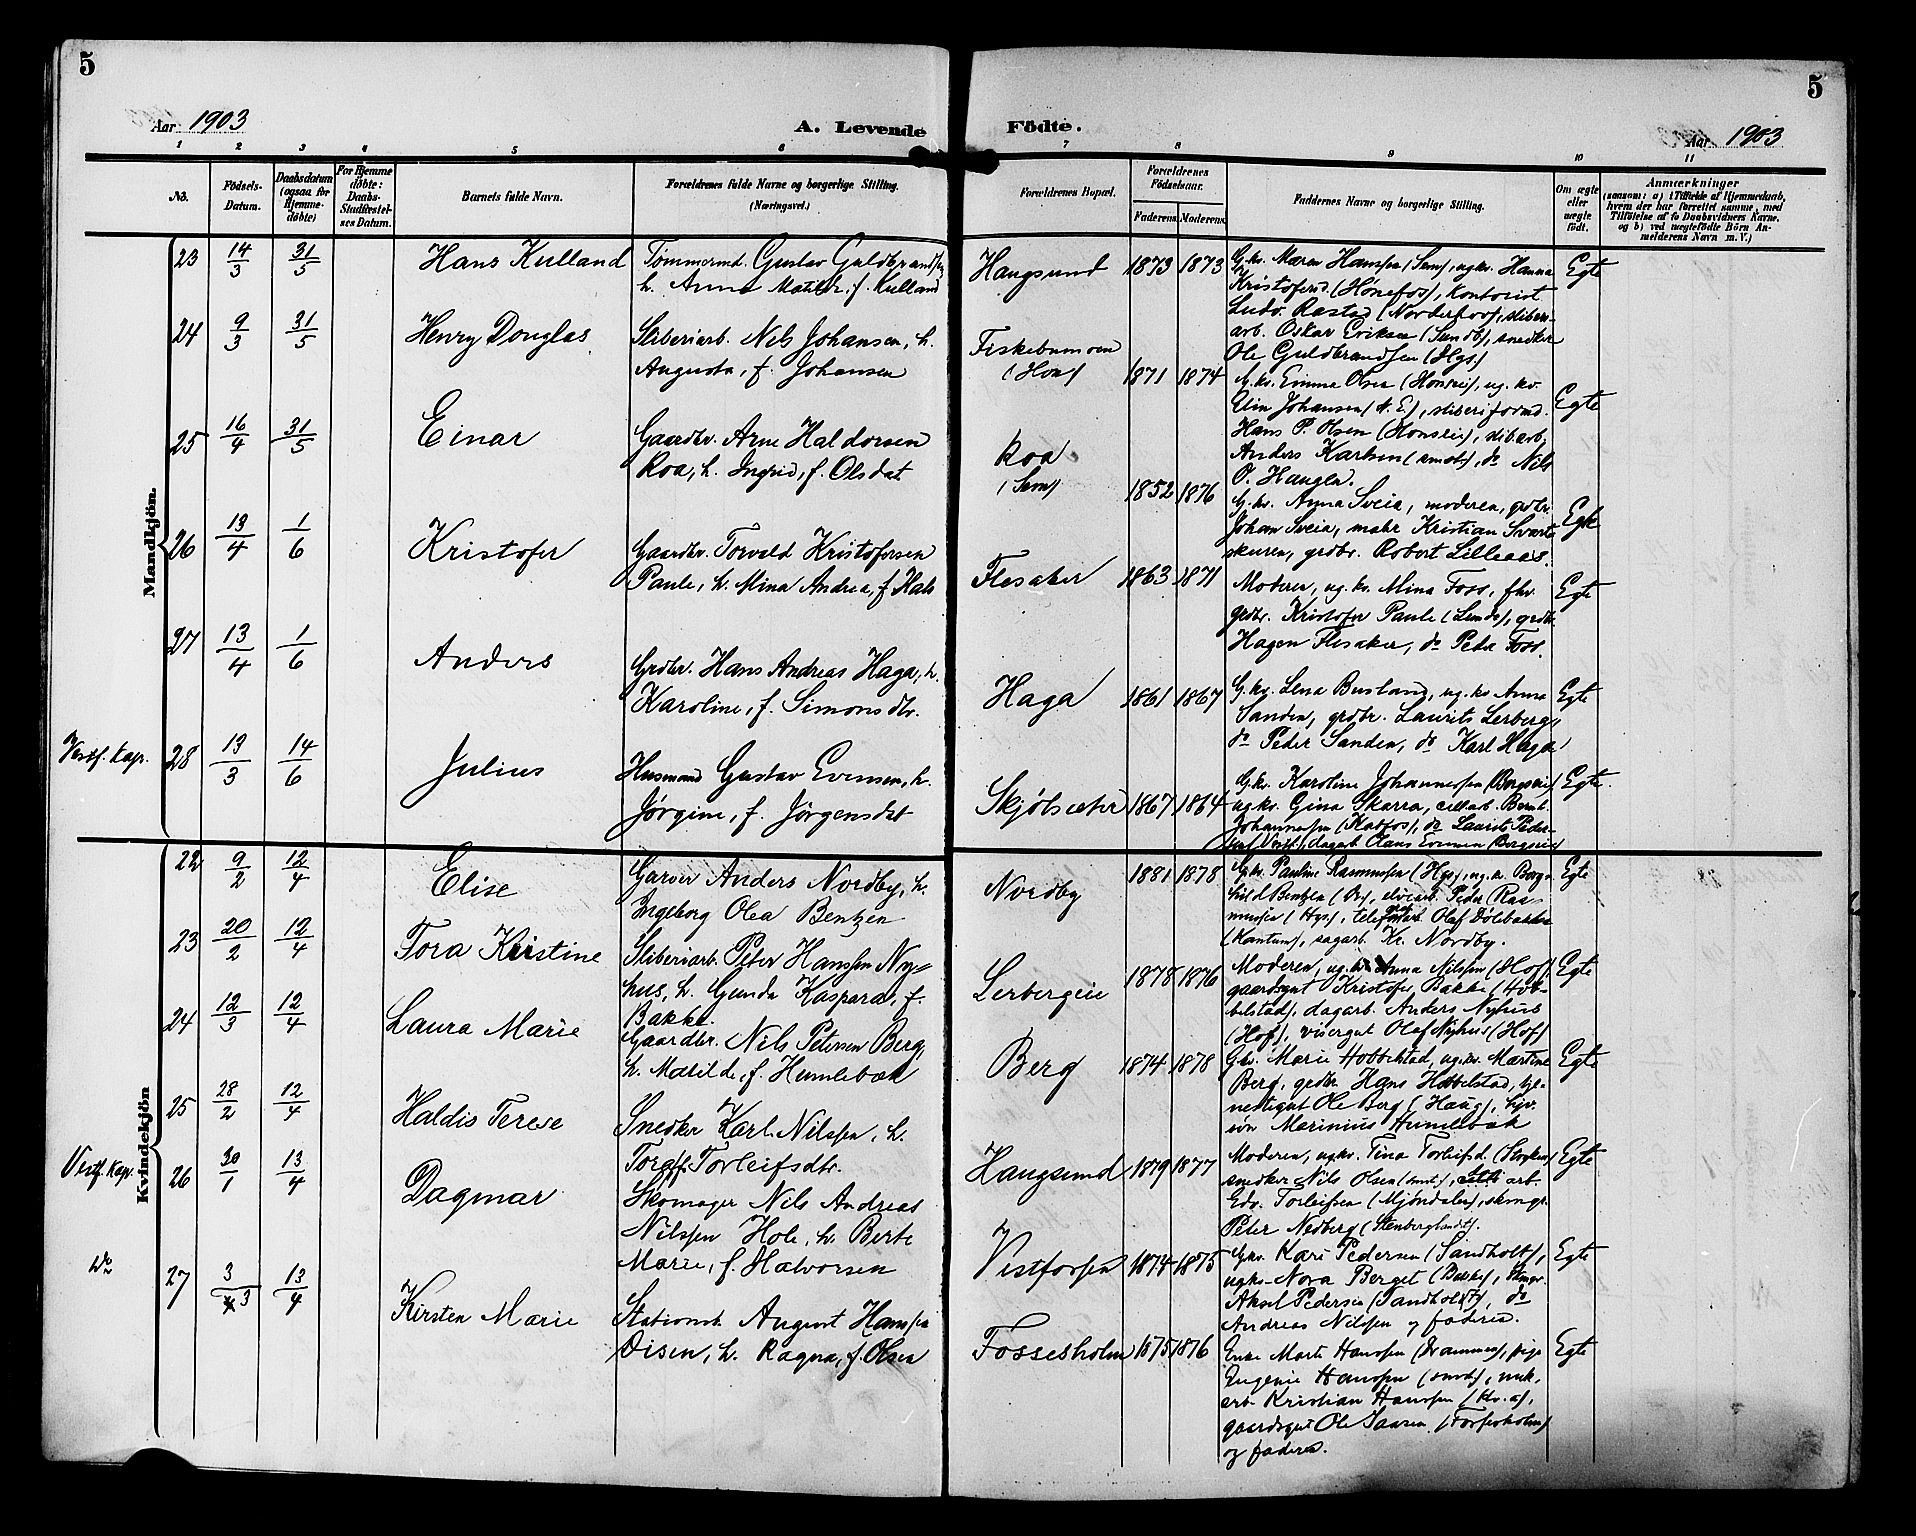 5
5
Aar 1903
A. Levende
Födte.
Aar 1903
1 2 3 4 5 6 7 8 9 10 11
No.
Födsels-
Datum.
Daabsdatum
(ogsaa for
Hjemme-
døbte)
For Hjemme
døbte:
Daabs-
Stadfæstel-
ses Datum.
Barnets fulde Navn.
Forældrenes fulde Navne og borgerlige Stilling.
(Næringsvei.)
Forældrenes Bopæl.
Forældrenes
Fødselsaar.
Faderens. Moderens.
Faddernes Navne og borgerlige Stilling.
Om ægte
eller
uægte
födt.
Anmærkninger
(saasom: a) i Tilfælde af Hjemmedaab,
hvem der har forrettet samme, med
Tilföielse af to Daabsvidners Navne,
og b) ved uægtefödte Börn An-
melderens Navn m. V.)
Mandkjön.
23 14/3 31/5 Hans Kulland
Tømmermd. Gustav Guldbrandsen
h. Anna Mathilde, f. Kulland
Haugsund 1873 1873
G. kv. Maren Hanssen (Sem), ug.kv. Hanna
Kristofersd. (Hønefos), kontorist
Ludv. Rastad (Norderhov), sliberi-
arb. Oskar Eriksen (Sundb), snedker
Ole Guldbrandsen (Hgs.)
Egte
24 9/3 31/5 Henry Douglas
Sliberiarb. Nils Johansen, h.
Augusta, f. Johansen
Fiskebummoen
(Hon) 1871 1874
G. kv. Emma Olsen (Honsei), ug. kv.
Elin Johansen (N. E.), sliberiformd.
Hans P. Olsen (Honsei), slib.arb.
Anders Karlsen (smst), do Nils
O. Haugen.
Egte
25 16/4 31/5 Einar
Gaardbr. Arne Haldorsen
Roa, h. Ingrid, f. Olsdat
Roa
(Sem) 1852 1876
G. kv. Anna Sveia, moderen, grdbr.
Johan Sveia, maler Kristian Svart-
skuren, grdbr. Robert Lilleaas.
Egte
26 13/4 1/6 Kristofer
Gaardbr. Torvald Kristofersen
Paule, h. Mina Andrea, f. Hals
Flesaker 1863 1871
Moderen, ug. kv. Mina Foss, fhv.
grdbr. Kristofer Paule (Lunde), grdbr.
Hagen Flesaker, do Peder Foss.
Egte
27 13/4 1/6 Anders
Grdbr. Hans Andreas Haga, h.
Karoline, f. Simonsdtr.
Haga 1861 1867
G. kv. Lena Busland, ug. kv Anna
Sanden, grdbr. Laurits Lerberg,
do Peder Sanden, do Karl Haga
Egte
Vestf. Kap. 28 13/3 14/6 Julius
Husmand Gustav Evensen, h.
Jørgine, f. Jørgensdat
Skjølsæter 1867 1864
G. kv. Karoline Johannessen (Borgerei)
ug kv. Gina Skarra, cell.arb. Bernt
Johannessen (Katfos), do Laurits Peder-
sen (Vestf.), dagarb. Hans Evensen (Borgerei)
Egte.
Kvindekjön
22 9/2 12/4 Elise
Garver Anders Nordby, h.
Ingeborg Olea Bentzen
Nordby 1881 1878
G. kv. Pauline Rasmussen (Hgs), ug. kv. Borg-
hild Bentzen (Ås), elvearb. Peder Ras-
mussen (Hgs.), telefonarb. Olaf Dølebakken
(Kantum), sagarb. Kr. Nordby.
Egte
23 20/2 12/4 Tora Kristine
Sliberiarb. Peter Hanssen Ny-
hus, h. Gunda Kaspara, f.
Bakke.
Lerbergeie 1878 1876
Moderen, ug. kv Anna Nilssen (Hof),
gaardsgut Kristofer Bakke (Hob-
belstad), dagarb. Anders Nyhus
(Hof), visergut Olaf Nyhus (Hof)
Egte
24 12/3 12/4 Laura Marie
Gaardbr. Nils Petersen Berg,
h. Matilde, f. Humlebæk
Berg 1874 1878
Gkv. Marie Hobbelstad, ugkv. Martine
Berg, grdbr. Hans Hobbelstad, tje-
nestegut Ole Berg (Haug), hjv.
søn Marinius Humlebæk
Egte
25 28/2 12/4 Haldis Terese
Snedker Karl Nilssen, h.
Tora, f. Torleifsdtr.
Haugsund 1879 1877
Moderen, ugkv. Tina Torleifsd. (Stryken)
snedker Nils Olsen (smst), arb.
Edv. Torleifsen (Mjøndalen), skomgr.
Peter Nedberg (Stenberglandst).
Egte
Vestf. Kap. 26 30/1 13/4 Dagmar
Skomager Nils Andreas
Nilssen Hole, h. Berte
Marie, f. Halvorsen
Vestfossen 1874 1875
Gkv. Kari Pedersen (Sandholt),
ugkv. Nora Berget (Bakke), skmgr.
Aksel Pedersen (Sandholdt), do
Andreas Nilssen og faderen.
Egte
do 27 3/3 13/4 Kirsten Marie
Stationsb. August Hanssen
Disen, h. Ragna, f. Olsen
Fossesholm 1875 1876
Enke Marte Hanssen (Drammen), pige
Eugenie Hanssen (smst), mek.
arb. Kristian Hanssen (Kr.a),
gaardsgut Ole Saaren (Fossesholm)
og faderen.
Egte